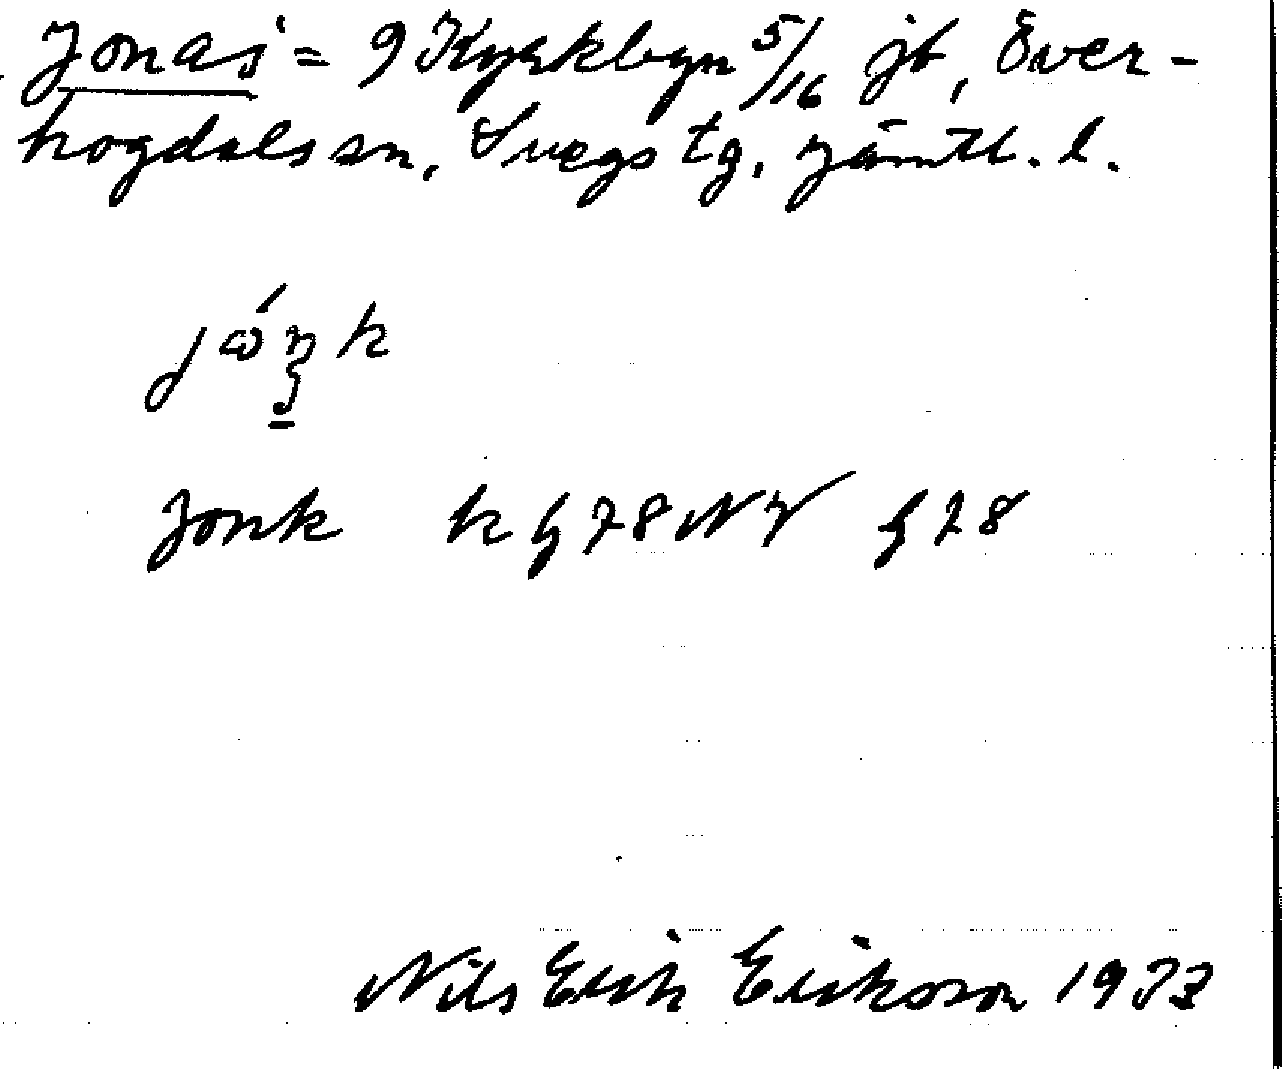 Jonas = 9 Kyrkbyn 5/16 jb, Över-
hogdals sn, Svegs tg, Jämtl. l.
Jonk k
Nils Erik Erikson 1973